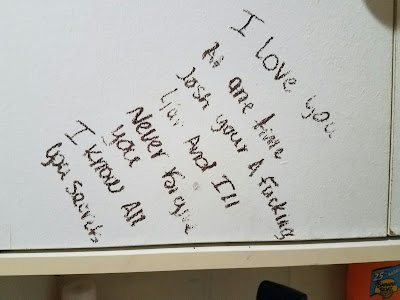 I love you
At one time
Josh your A fucking
liar And I'll
Never forgive
you
I know All
you
25